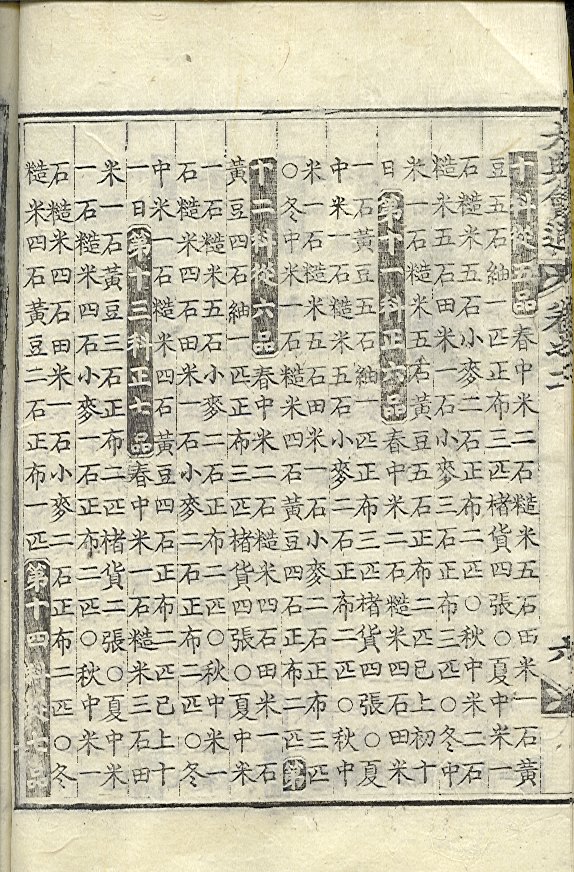 大典會通 卷之二 六
十科從五品春中米二石糙米五石田米一石黃
豆五石紬一匹正布三匹楮貨四張○夏中米一
石糙米五石小麥二石正布二匹○秋中米二石
糙米五石田米一石小麥三石正布三匹○冬中
米一石糙米五石黃豆五石正布二匹已上初十
日第十一科正六品春中米二石糙米四石田米
一石黃豆五石紬一匹正布三匹楮貨四張○夏
中米一石糙米五石小麥二石正布二匹○秋中
米一石糙米五石田米一石小麥二石正布三匹
○冬中米一石糙米四石黃豆四石正布二匹第
十二科從六品春中米二石糙米四石田米一石
黃豆四石紬一匹正布三匹楮貨四張○夏中米
一石糙米五石小麥二石正布二匹○秋中米一
石糙米四石田米一石小麥二石正布二匹○冬
中米一石糙米四石黃豆四石正布二匹已上十
一日第十三科正七品春中米一石糙米三石田
米一石黃豆三石正布二匹楮貨二張○夏中米
一石糙米四石小麥一石正布二匹○秋中米一
石糙米四石田米一石小麥二石正布二匹○冬
糙米四石黃豆二石正布一匹第十四科從七品